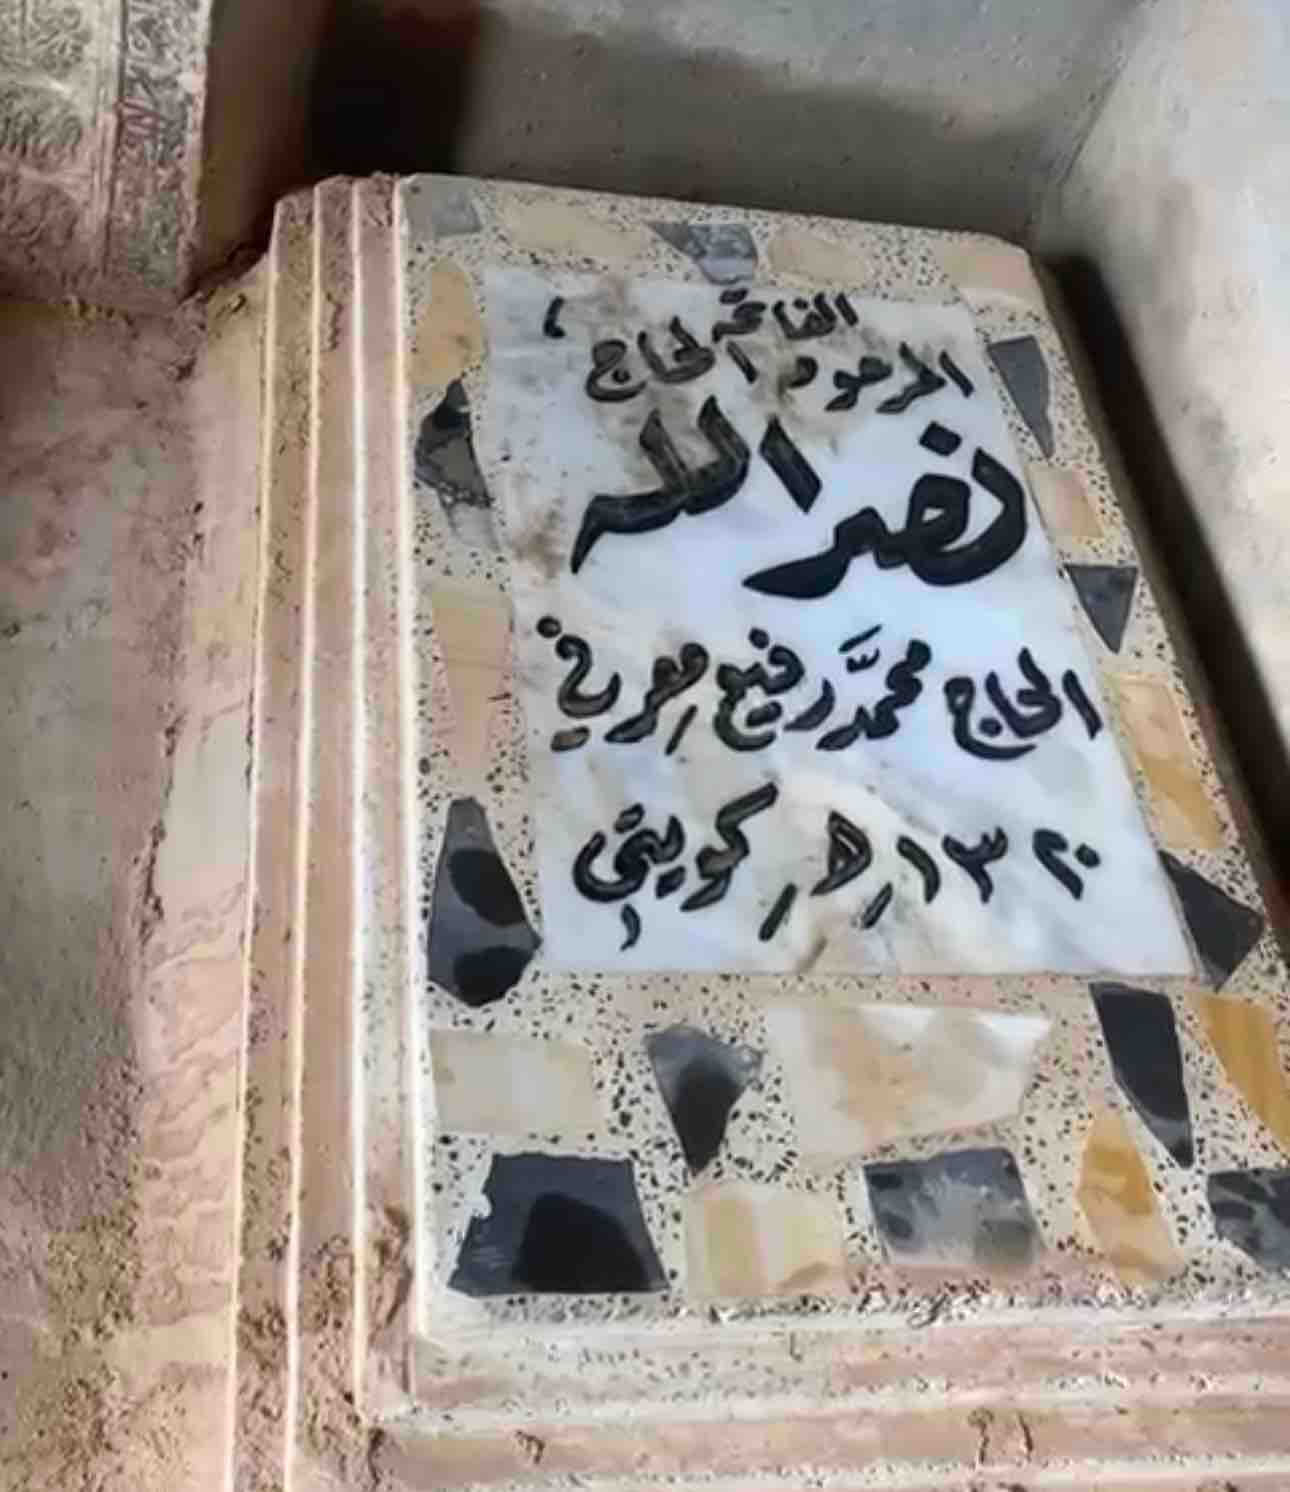 الفاتحة
المرحوم الحاج
نصر الله
الحاج محمَّد رفيع معرفي
١٣٢٠ هـ كويتي